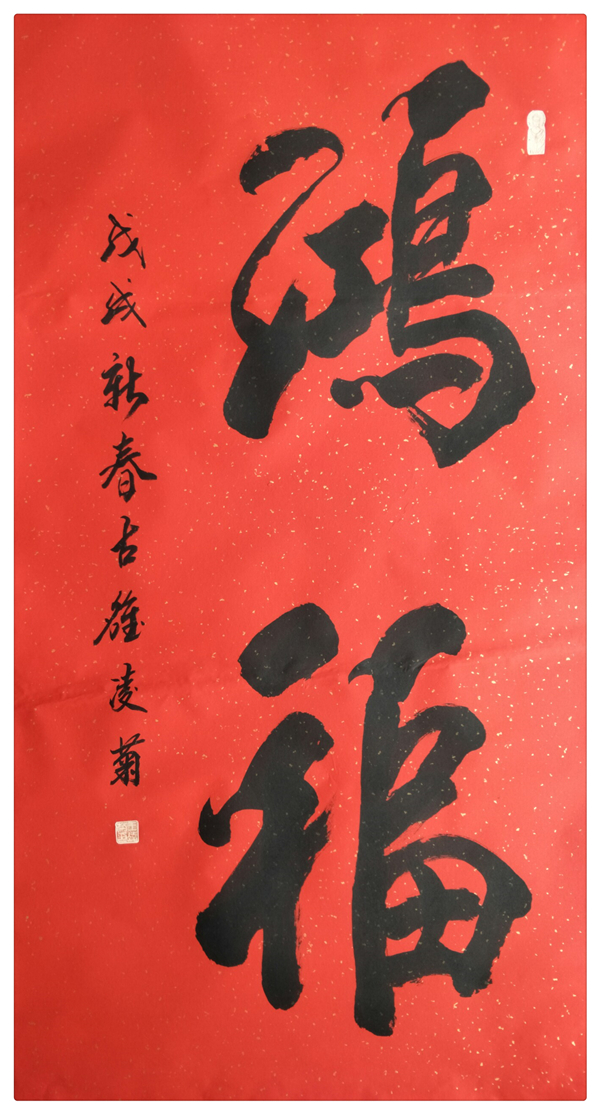 鸿福
戊戌新春古徽凌菊